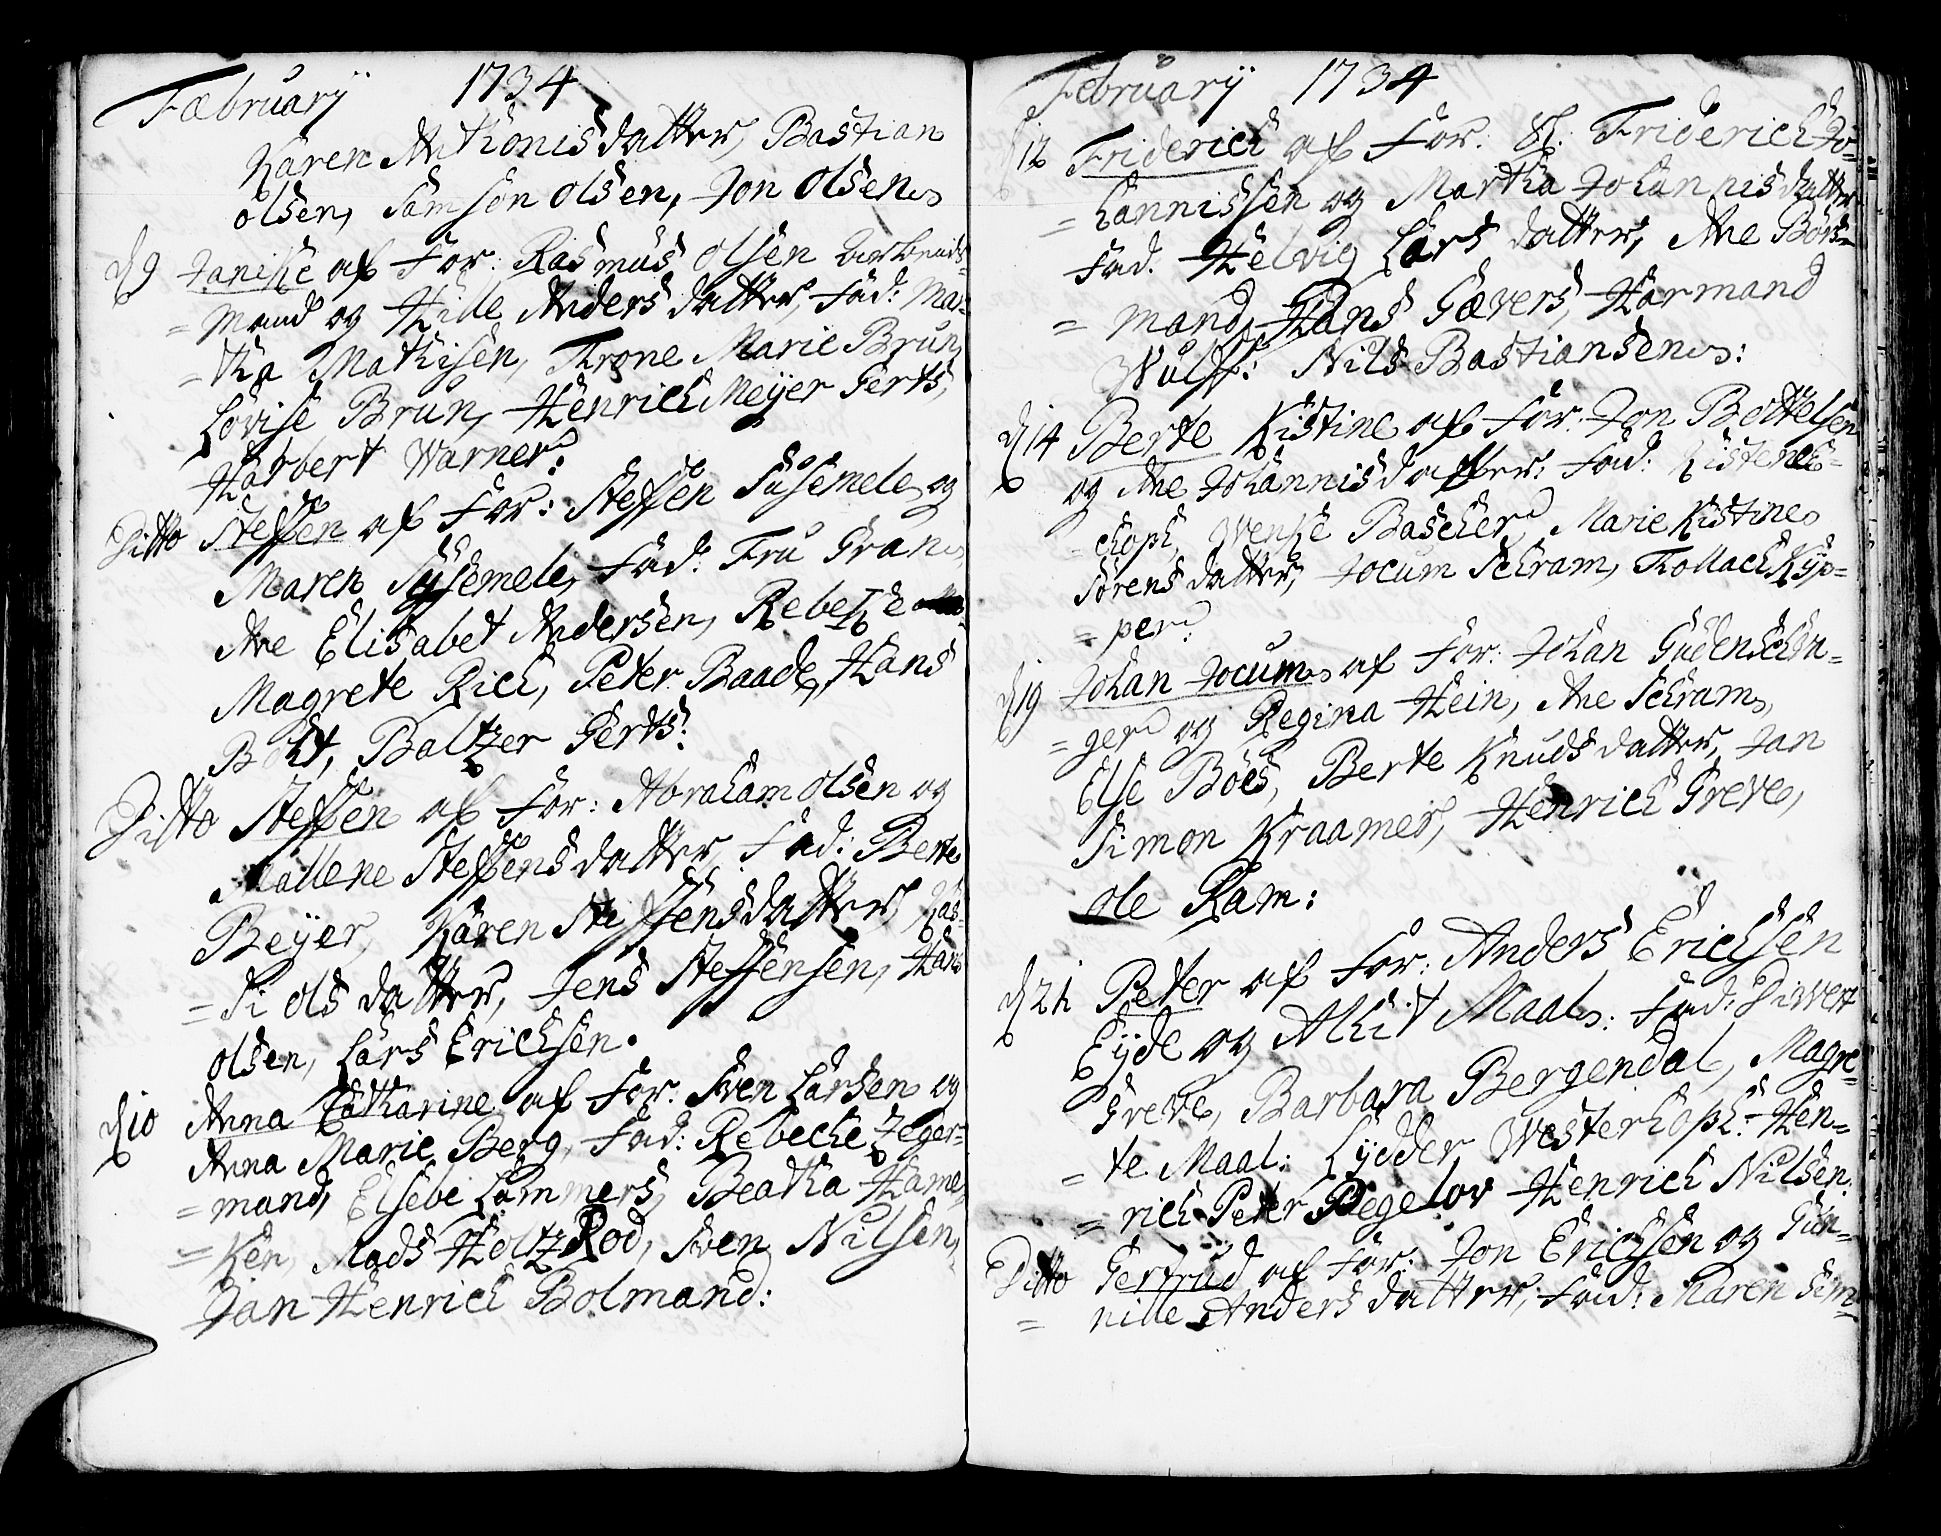 Fæbruarÿ 1734
Karen Anthonis datter, Bastian
olsen, Samson olsen, Jon olsen
d 9 Janike af For: Rasmus olsen Arbeids-
= mand og Hille Anders datter, Fad: Mar-
= tha Mathisen, Trone Marie Brun,
Lovise Brun, Henrich Meÿer Gerts,
Harbert Warner:
Ditto Steffen af For: Steffen Susemele og
Maren Susemele, Fad: Fru Gran
Ane Elisabet Andersen, Rebekke
Magrete Rich, Peter Baade, Hans
Bolt, Baltzer Gerts:
Ditto Steffen af For: Abraham olsen og
Mallene Steffens datter, Fad: Berte
Beÿer, Karen Steffensdatter,
= Si ols datter, Jens Steffensen, Hans
olsen, Lars Erichsen.
d 10 Anna Catharine af For: Sven Larsen og
Anna Marie Berg, Fad: Rebeche Zeger=
= mand, Elsebe Lammers, Beatha Hame
= ken, Mads Holtz Rod, Sven Nilsen,
Jan Henrich Bolmand:
Februarÿ 1734
d 12 Friderich af For: Sl: Friderich Jo=
= hannissen og Martha Johannisdatter
Fad. Helvig Lars datter, Ane Börse-
= mand, Hans Gævers, Harmand
Wulff: Nils Bastiansen:
d 14 Berte Kistine af For: Jon Bottelsen
og Ane Johannisdatter: Fad: Kistence=
= choph, Wenke Bascher, Marie Kistine
Sørens datter, Jocum Schram, Tollach Kÿp=
= per:
d 19 Johan Jocum af For: Johan Gudenschwa=
= ger og Regina Hein, Ane Schram,
Else Böes, Berte Knuds datter, Jan
Simon Kraamer, Henrich Greve,
ole Ram:
d 21 Peter af For: Anders Erichsen
Eÿde og Alhit Maal: Fad: Sivert
Greve, Barbara Bergendal, Magre=
= te Maal: Lÿdder Westerhoph: Hen=
= rich Peter Pegelov Henrich Nilsen.
Ditto Gertrud af For: Jon Erichsen og Gun=
= nille Anders datter, Fad: Maren Sim=